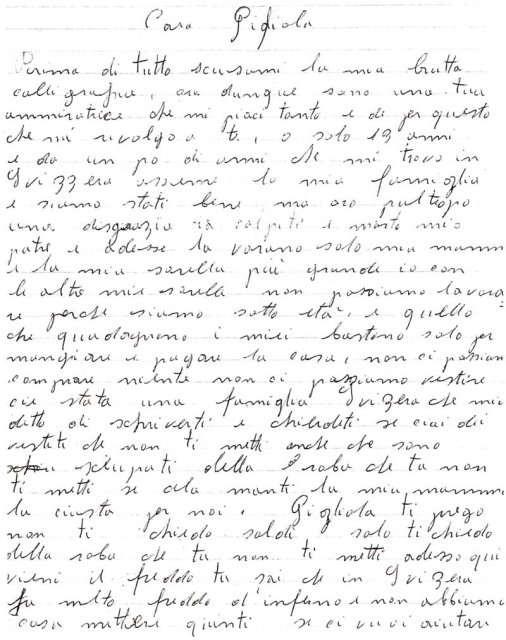 Cara Gigliola
Prima di tutto scusami la mia brutta
calligrafia, ora dunque sono una tua
ammiratrice che mi piaci tanto e di per questo
che mi rivolgo a ti, o solo 13 anni
e da un po di anni che mi trovo in
Svizzera assieme la mia famiglia
e siamo stati bene ma ora pultropo
una disgrazia ci colpiti e morto mio
patre e adesse la vorano solo mia mamm
e la mia sorella più grande io con
le altre mie sorelle non possiamo lavora
re perche siamo sotto età, e quello
che guadagnono i miei bastono solo per
mangiare e pagare la casa, non ci possiam
comprare niente non ci possiamo vestire
cie stata una famiglia Svizera che mia
ditto di schriverti e chiederti se ciai dei
vestiti che non ti metti anche che sono
sciupati della roba che tu non
ti metti se ala manti la mia mamma
la ciusta per noi. Gigliola ti prego
non ti chiedo soldi solo ti chiedo
della roba che tu non ti metti adesso qui
vieni il freddo tu sai che in Svizera
fa molto freddo d'inferno e non abbiamo
cosa metterci giunti se ci vuoi aiutare